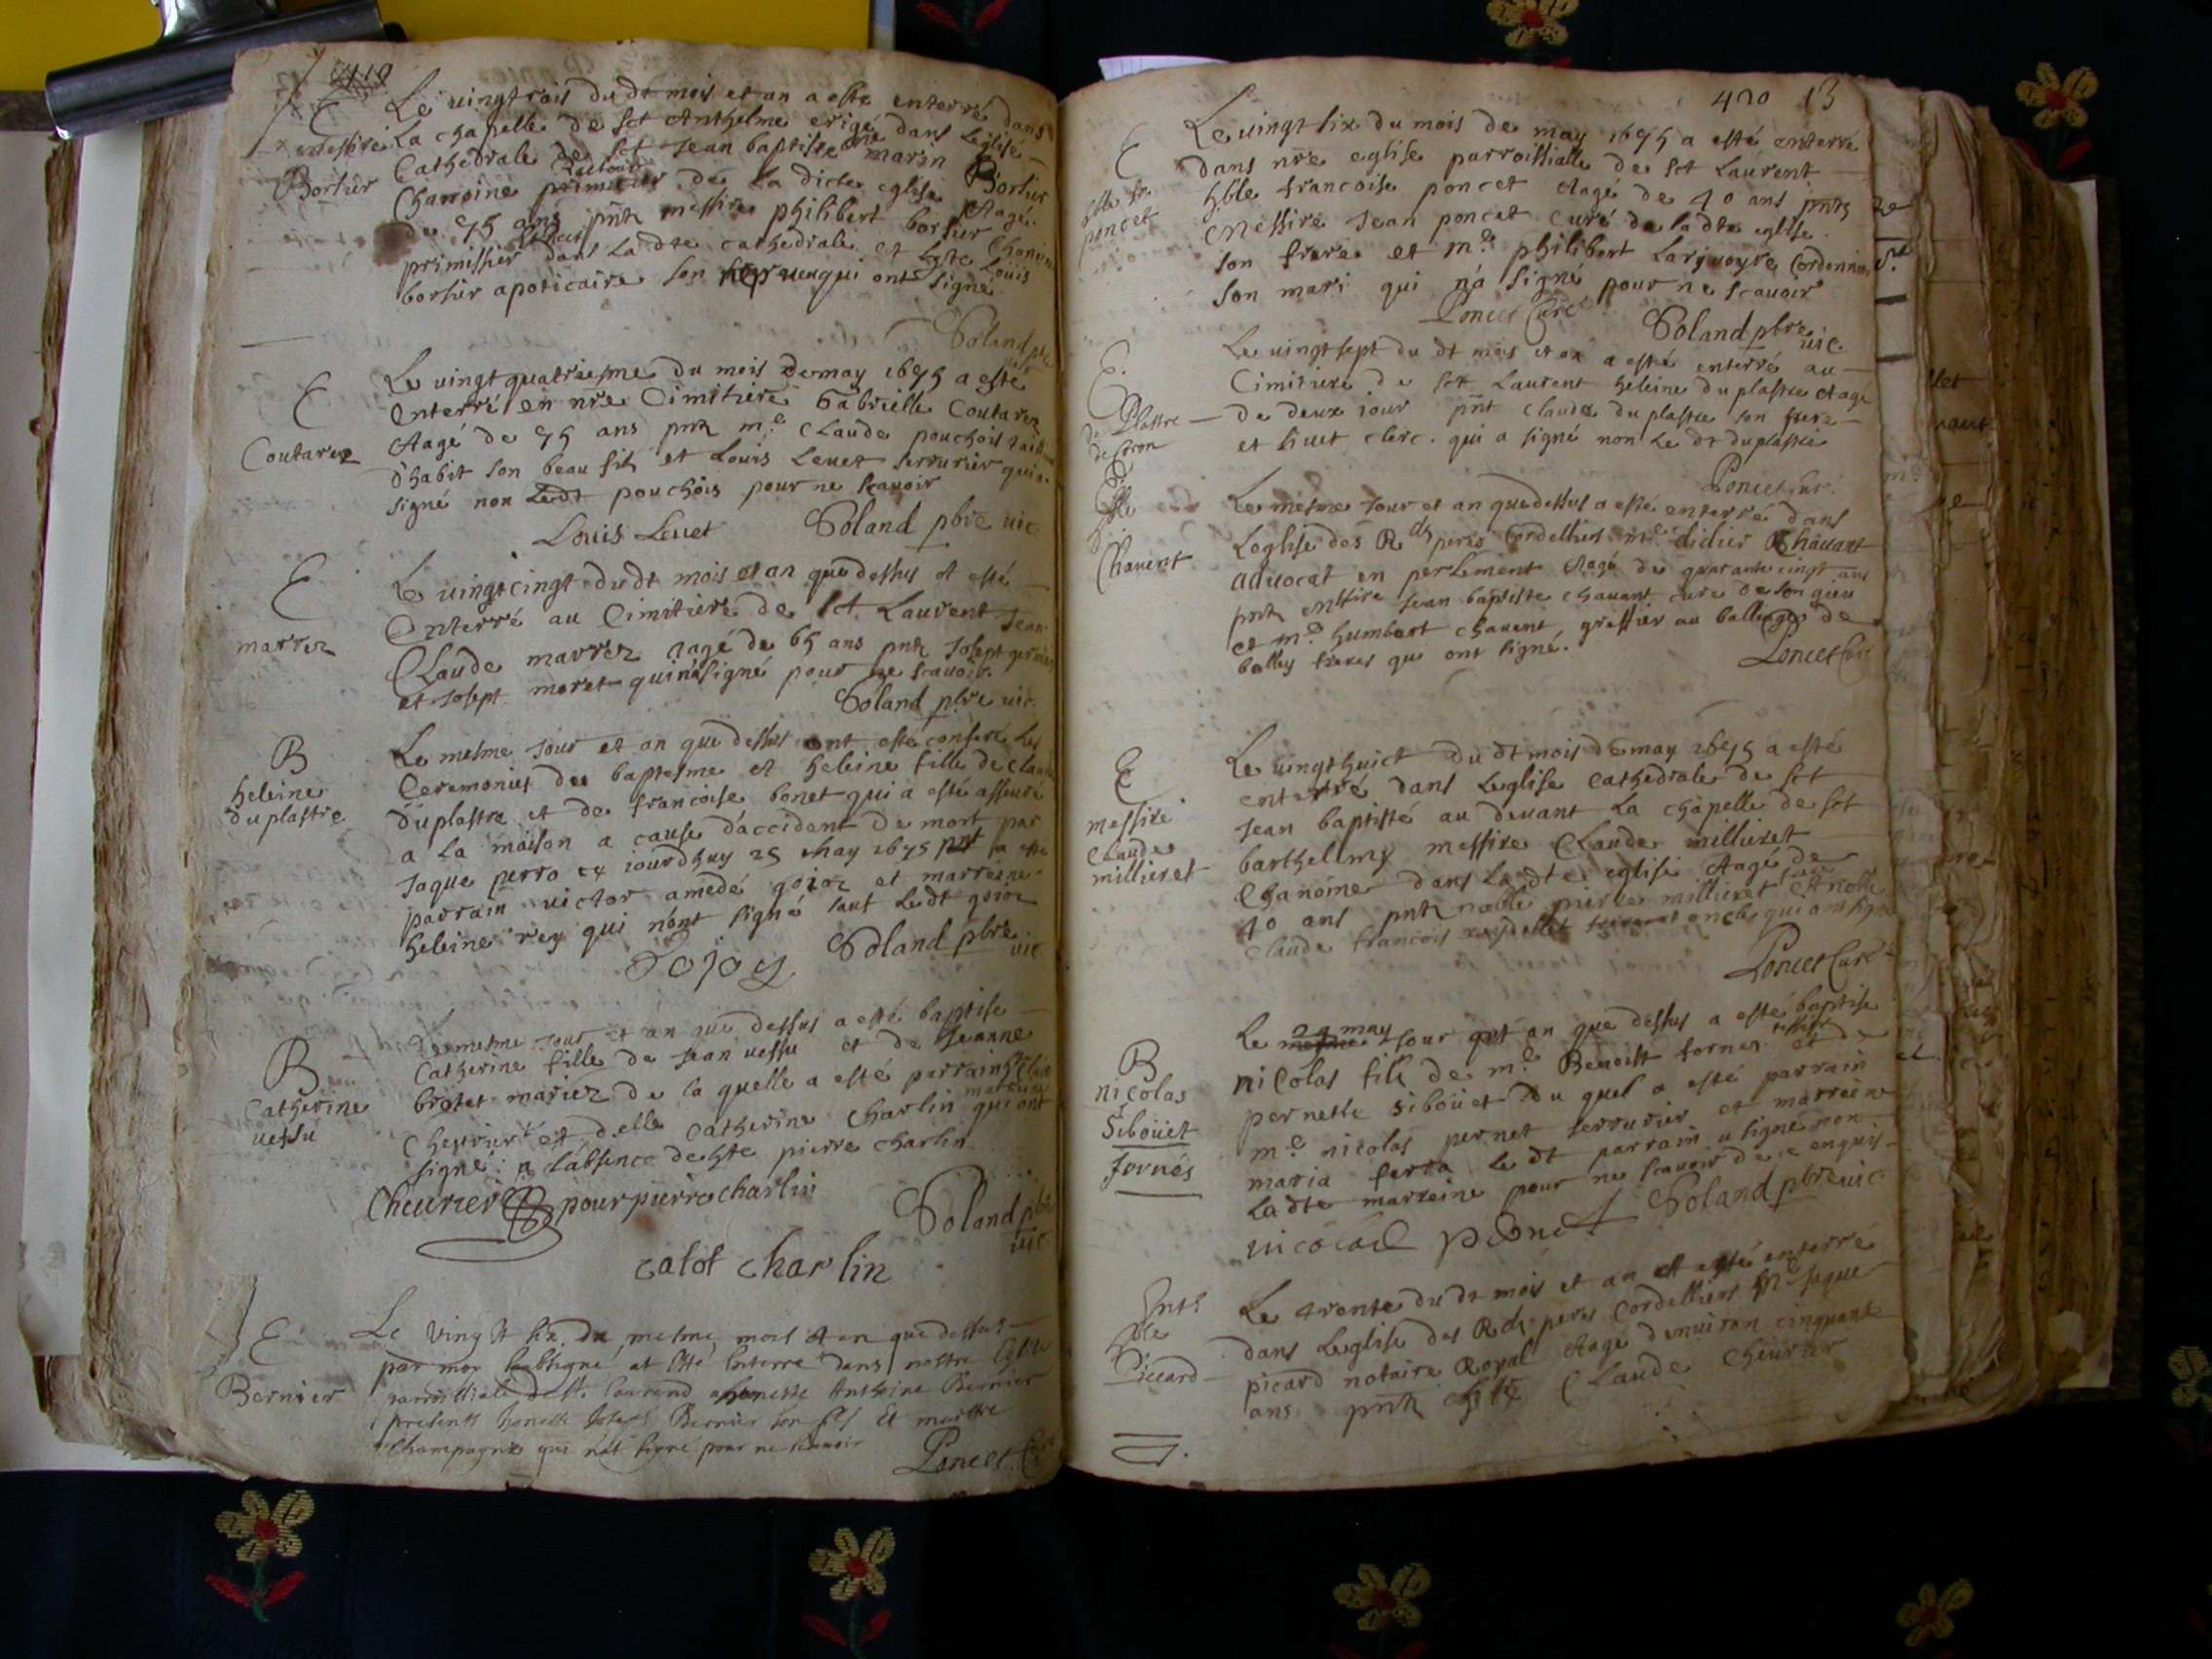 419
E
messire
Borsier
Le vingtrois dudt mois et an a este enterré dans
La chapelle de sct Anthelme erigé dans Leglise
Cathedrale de sct Jean baptiste mre marin Borsier
Chanoine de La dicte eglise Aagé
de 75 ans pnt messire philibert borsier Chanoine
primissier dans Ladte cathedrale et hste Louis
borsier apoticaire son nepveu qui ont signé
Poland pbre
E
Coutarez
Le vingt quatriesme du mois de may 1675 a este
Enterré en nre Cimitiere Gabrielle Coutarez
Aagé de 75 ans pnt mre Claude pouchois
d'habit son beau fils et Louis Levet serrurier qui a
signé non Ledt pouchois pour ne scavoir
Louis Levet Poland pbre vic
E
marrez
Le vingtcingt dudt mois et an que dessus at esté
Enterré au Cimitiere de sct Laurent Jean
Claude marrez aagé de 65 ans pnt Josept
et Josept moret qui n'a signé pour ne scavoir
Poland pbre vic.
B
heleine
duplastre
Le mesme Jour et an que dessus ont este conferé Les
Ceremonies du baptesme et heleine fille de Claude
duplastre et de francoise bonet qui a esté
a La maison a cause d'accident de mort par
Jaque perro ce iourdhuy 25 may 1675 a este
parrain victor amedé goioz et marreine
heleine rey qui n'ont signé sauf Ledt goioz
Gojoz Poland pbre vic
B
Catherine
vessu
Le mesme Jour et an que dessus a esté baptise
Catherine fille de Jean vessu et de Jeanne
brotet mariez de la quelle a esté parrain
Cheurier et delle Catherine Charlin qui ont
signé: a L'absence de hste pierre charlin
Cheurier pour pierre charlin
Poland pbre vic
catot charlin
E
Bernier
Le Vingt six du mesme mois et an que dessus
par moy soubsigné at esté Enterré dans nostre Eglise
parroissiale de St laurend honeste Anthoine Bernier
presents honeste Joseph Bernier son fils Et maistre
Champagne qui n'at signé pour ne scavoir
Poncet Curé
420 13
E
hble fr.
poncet
Le vingt six du mois de may 1675 a esté enterré
dans nre eglise parroissialle de sct Laurent
hble francoise poncet Aagé de 40 ans pnts
Messire Jean poncet Curé de la dte eglise
son frere et mre philibert Larjvoyre Cordonnier
son mari qui n'a signé pour ne scavoir
Poncet Curé Poland pbre vic.
E.
du Plastre
Le vingt sept du dt mois et an a esté enterré au
Cimitiere de sct Laurent heleine du plastre Aagé
de deux iour pnt claude du plastre son pere
et livet clerc. qui a signé non Le dt duplastre
Poncet Curé.
Chavent
Le mesme Jour et an que dessus a esté enterré dans
Leglise des Rds peres Cordelliers mre didier Chavant
advocat en perlement Aagé de quarante cingt ans
pnt messire Jean baptiste chavant curé de
et mre humbert chavent greffier au balliage de
balley freres qui ont signé.
Poncet Curé
E
messire
Claude
millieret
Le vingt huict du dt mois de may 1675 a esté
enterré dans Leglise Cathedrale de sct
Jean baptiste au devant La chapelle de sct
barthelmy messire Claude millieret
Chanoine dans Ladte eglise Aagé de
40 ans pnt noble pierre millieret
claude francois oncles qui ont signé
Poncet Curé
B
nicolas
Siboüet
fornés
Le 29 may Jour et an que dessus a esté baptise
nicolas fils de mre Benoist fornez tessier et de
pernette siboüet du quel a esté parrain
mre nicolas pernet serrurier et marreine
maria ferra Le dt parrain a signé non
Ladte marreine pour ne scavoir de ce enquis
Poland pbre vic
Picard
Le trente du dt mois et an at esté enterré
dans Leglise des Rds peres Cordelliers Mre Jaque
picard notaire Royal Aagé d'environ cinquante
ans pnt hste Claude Cheurier